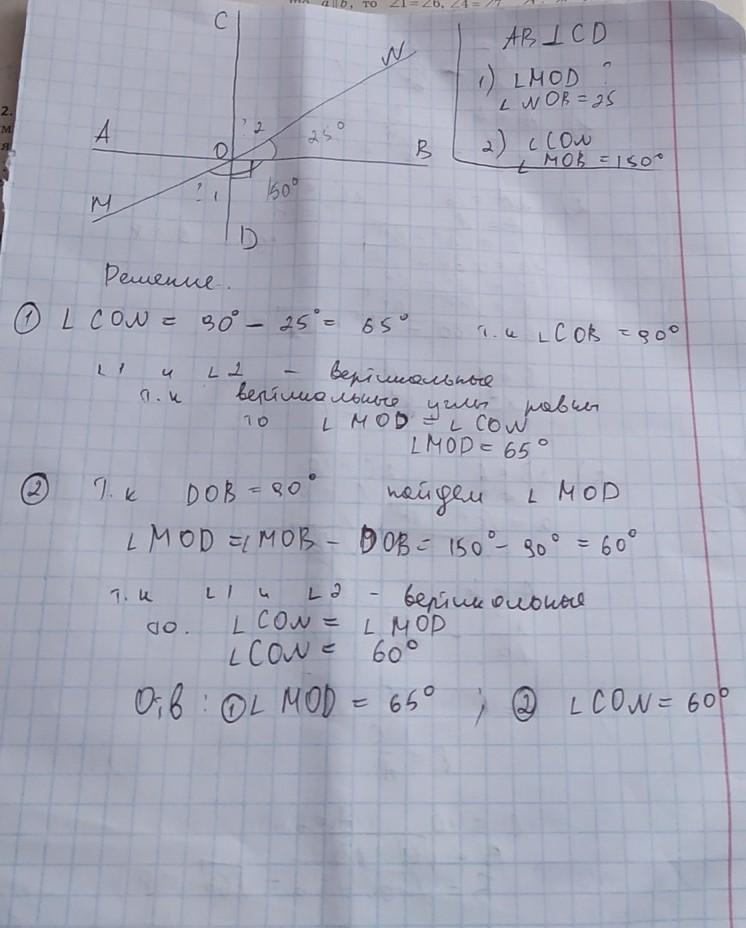 то a∥b, то ∠1=∠6, ∠4=∠7
2.
м
я
C
N
? 2
A
O
25°
B
M
? 1
150°
D
AB⊥CD
1) ∠MOD ?
∠NOB=25
2) ∠CON
∠MOB=150°
Решение.
① ∠CON = 90° - 25° = 65° т.к ∠COB = 90°
∠1 и ∠2 - вертикальные
т.к вертикальные углы равны
то ∠MOD = ∠CON
∠MOD = 65°
② Т.к DOB = 90° найдем ∠MOD
∠MOD = ∠MOB - DOB = 150° - 90° = 60°
т.к ∠1 и ∠2 - вертикальные
то. ∠CON = ∠MOD
∠CON = 60°
Отв: ① ∠MOD = 65° ; ② ∠CON = 60°